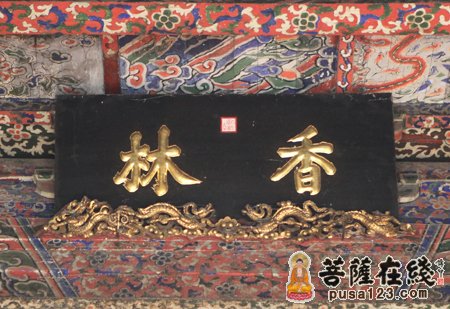 香林
菩薩在綫
pusa123.com